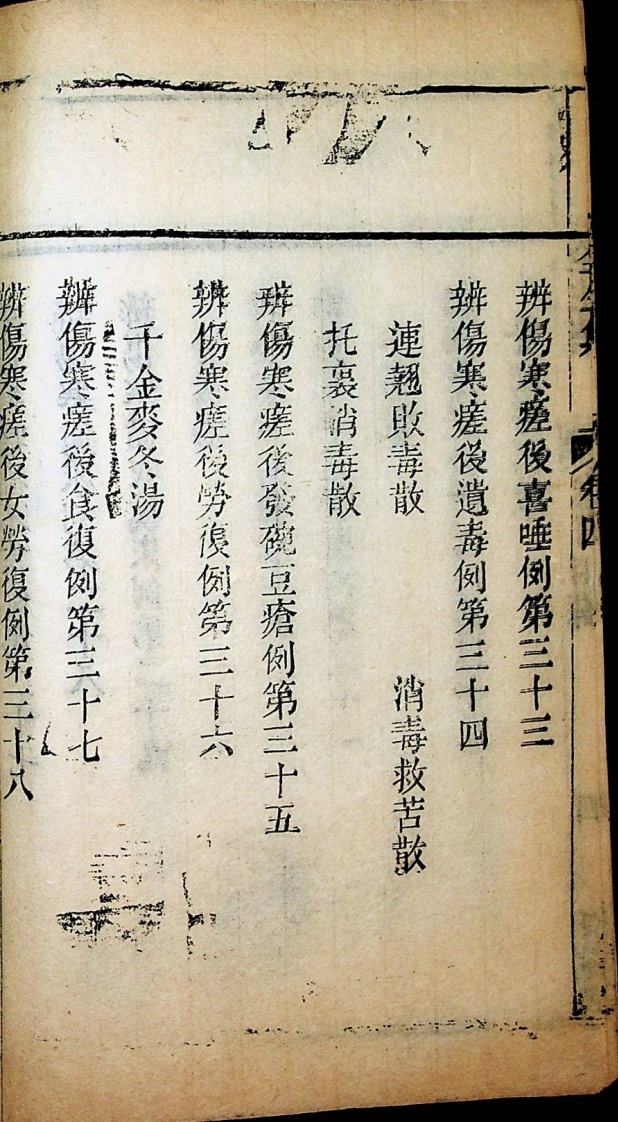 卷四
辨傷寒瘥後喜唾例第三十三
辨傷寒瘥後遺毒例第三十四
連翹敗毒散　消毒救苦散
托裏消毒散
辨傷寒瘥後發碗豆瘡例第三十五
辨傷寒瘥後勞復例第三十六
千金麥冬湯
辨傷寒瘥後食復例第三十七
辨傷寒瘥後女勞復例第三十八